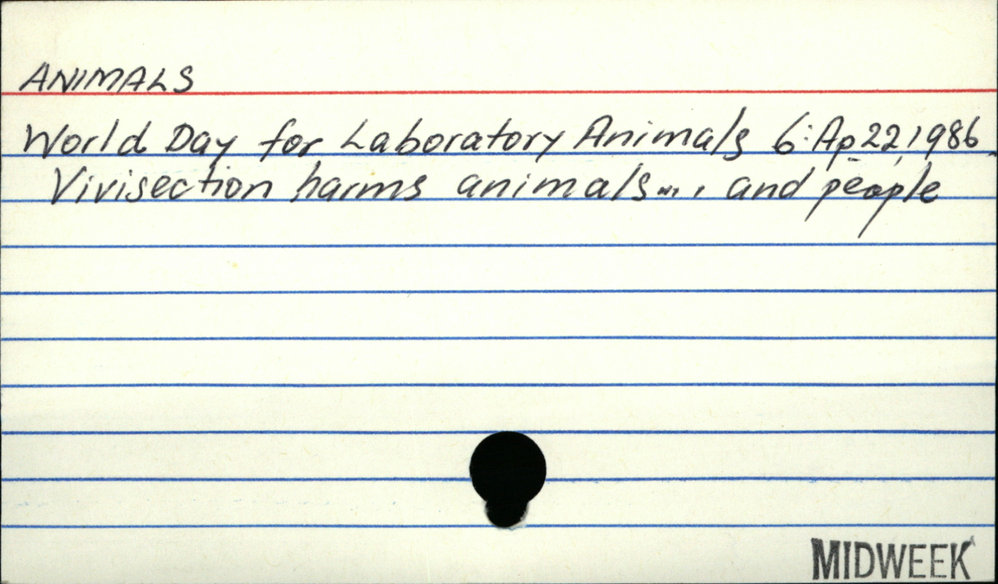 ANIMALS
World Day for Laboratory Animals 6:Ap 22, 1986
Vivisection harms animals.... and people
MIDWEEK